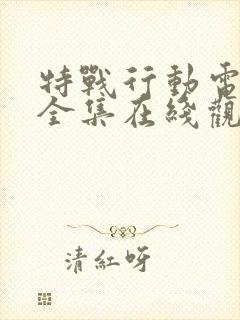 特戰行動電
全集在綫觀
清紅呀